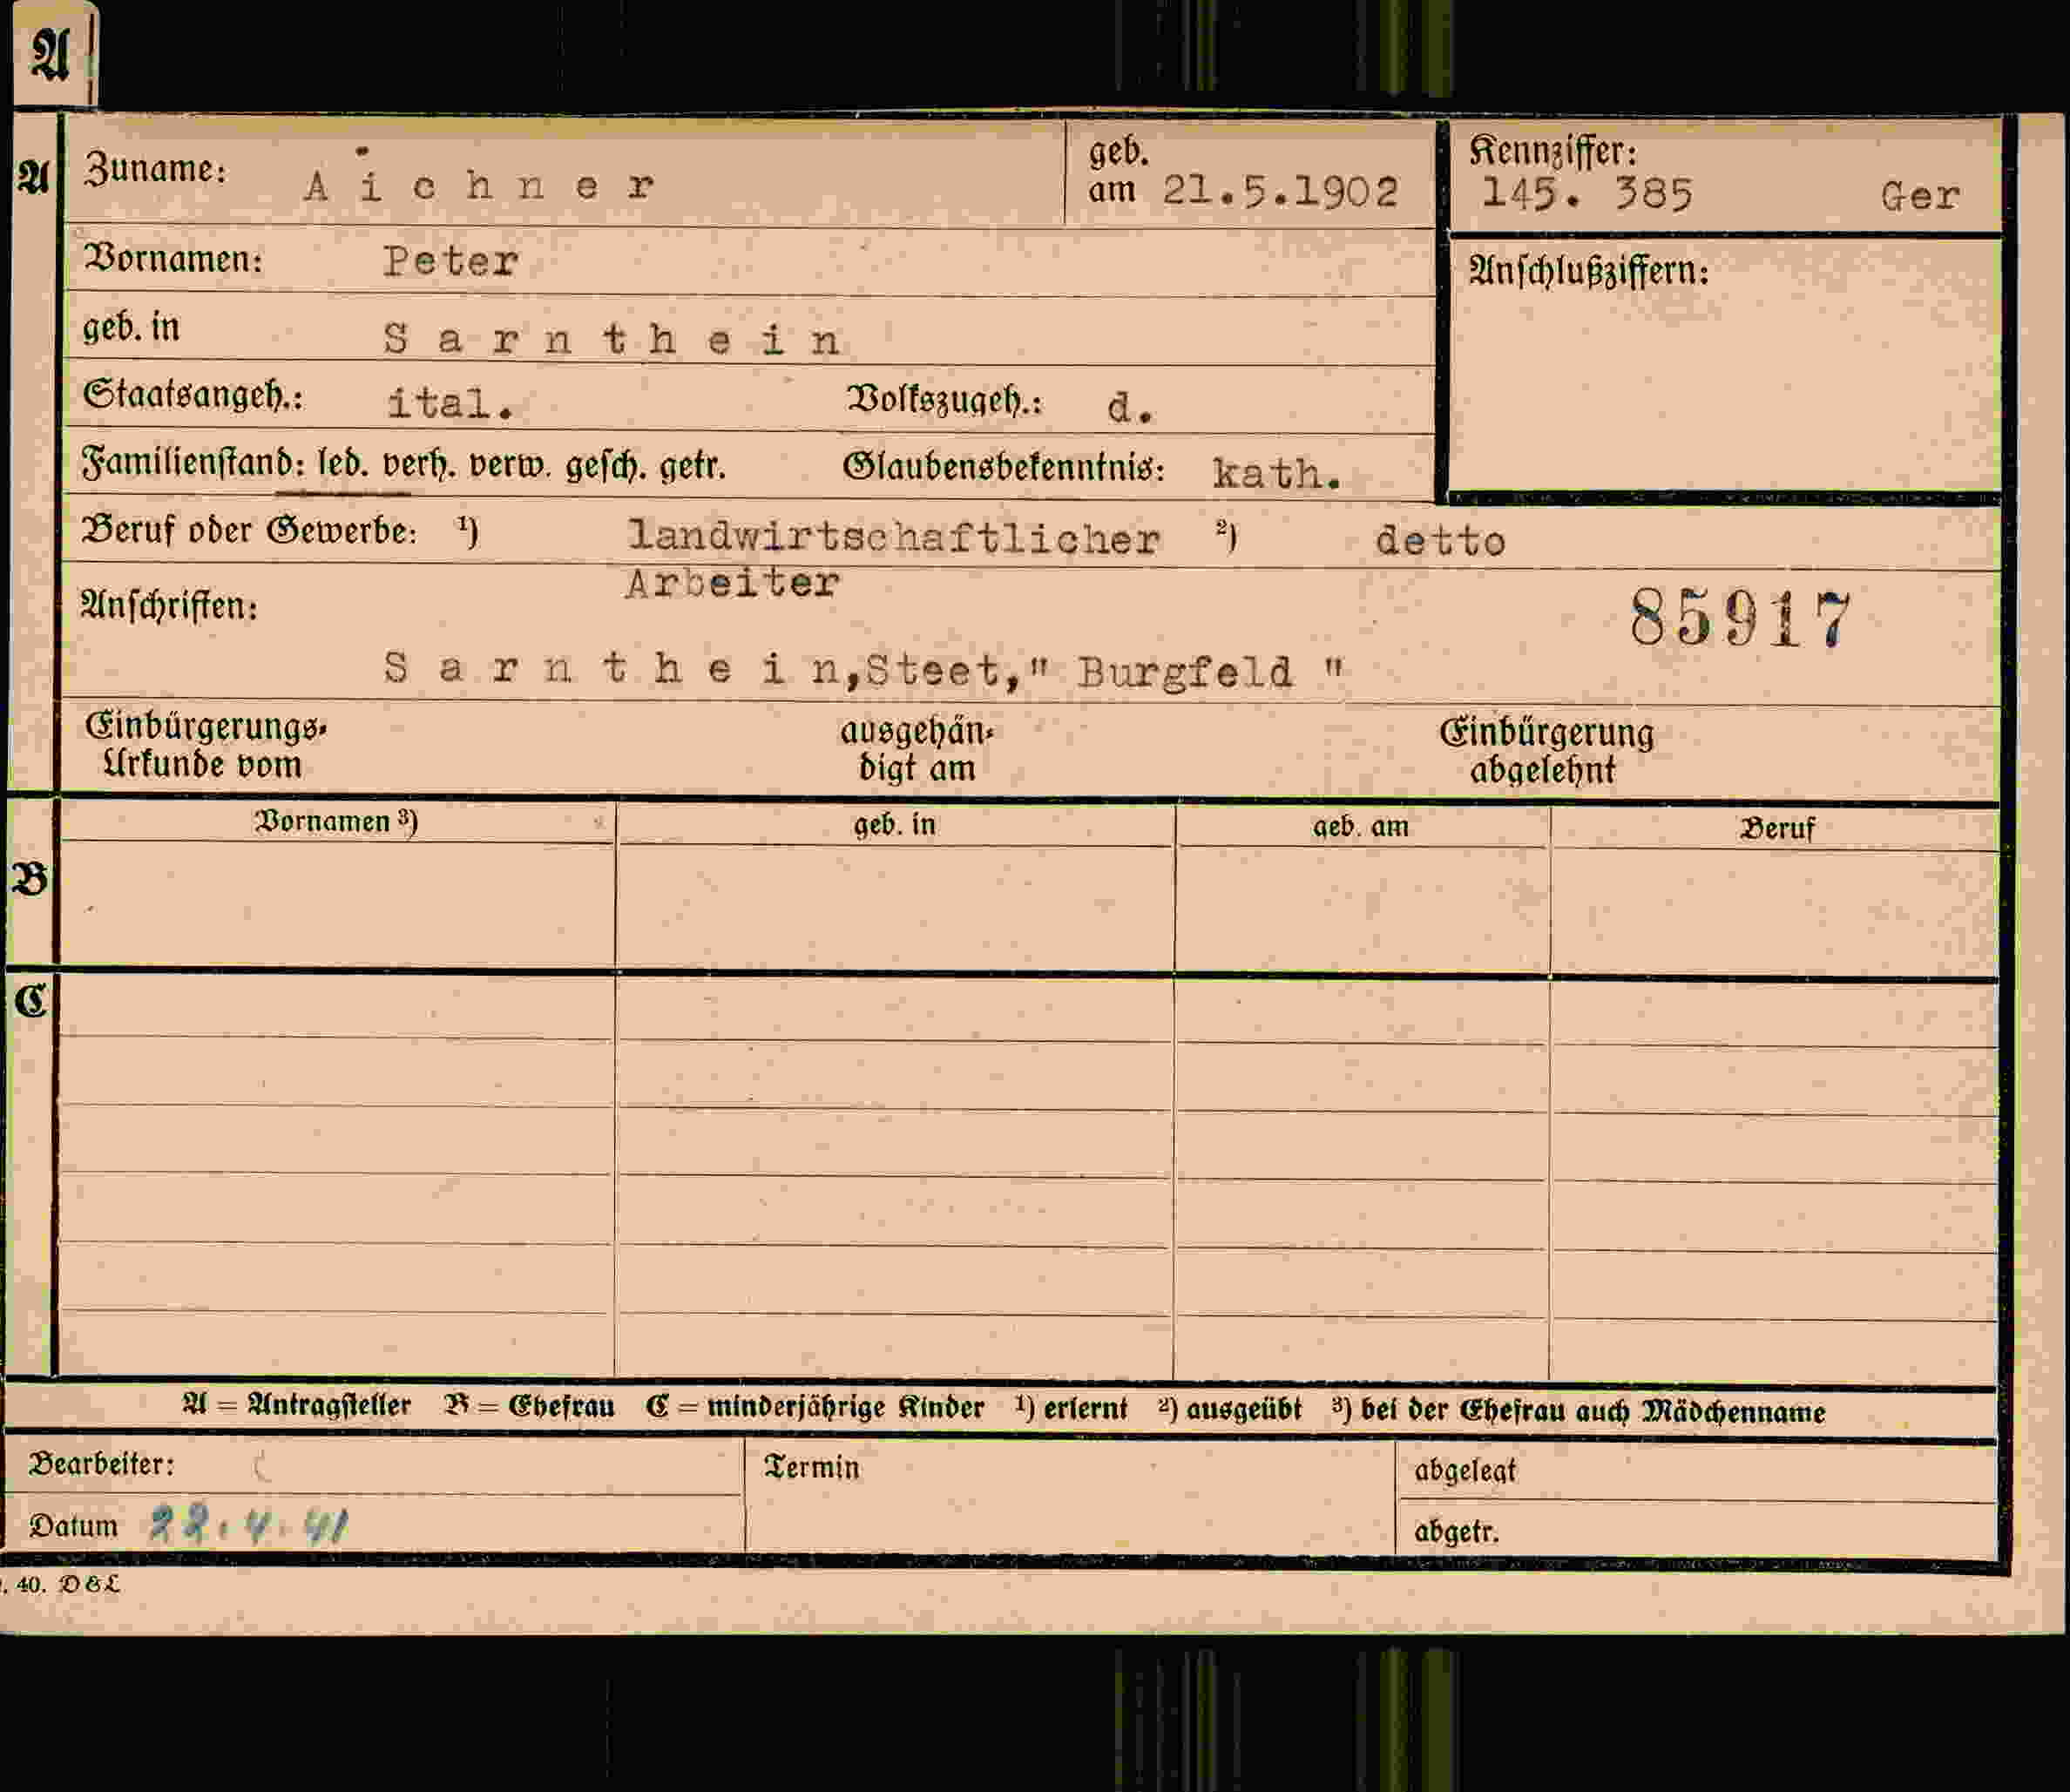 A
A
Zuname: Aichner
geb. am 21.5.1902
Kennziffer: 145. 385 Ger
Vornamen: Peter
Anschlußziffern:
geb. in Sarnthein
Staatsangeh.: ital. Volkszugeh.: d.
Familienstand: led. verh. verw. gesch. getr. Glaubensbekenntnis: kath.
Beruf oder Gewerbe: ¹) landwirtschaftlicher ²) detto
Arbeiter
Anschriften:
85917
Sarnthein,Steet," Burgfeld "
Einbürgerungs-
Urkunde vom
ausgehän-
digt am
Einbürgerung
abgelehnt
Vornamen ³) geb. in geb. am Beruf
B
C
A = Antragsteller B = Ehefrau C = minderjährige Kinder ¹) erlernt ²) ausgeübt ³) bei der Ehefrau auch Mädchenname
Bearbeiter:
Termin
abgelegt
Datum 22.4.41
abgetr.
. 40. D & L